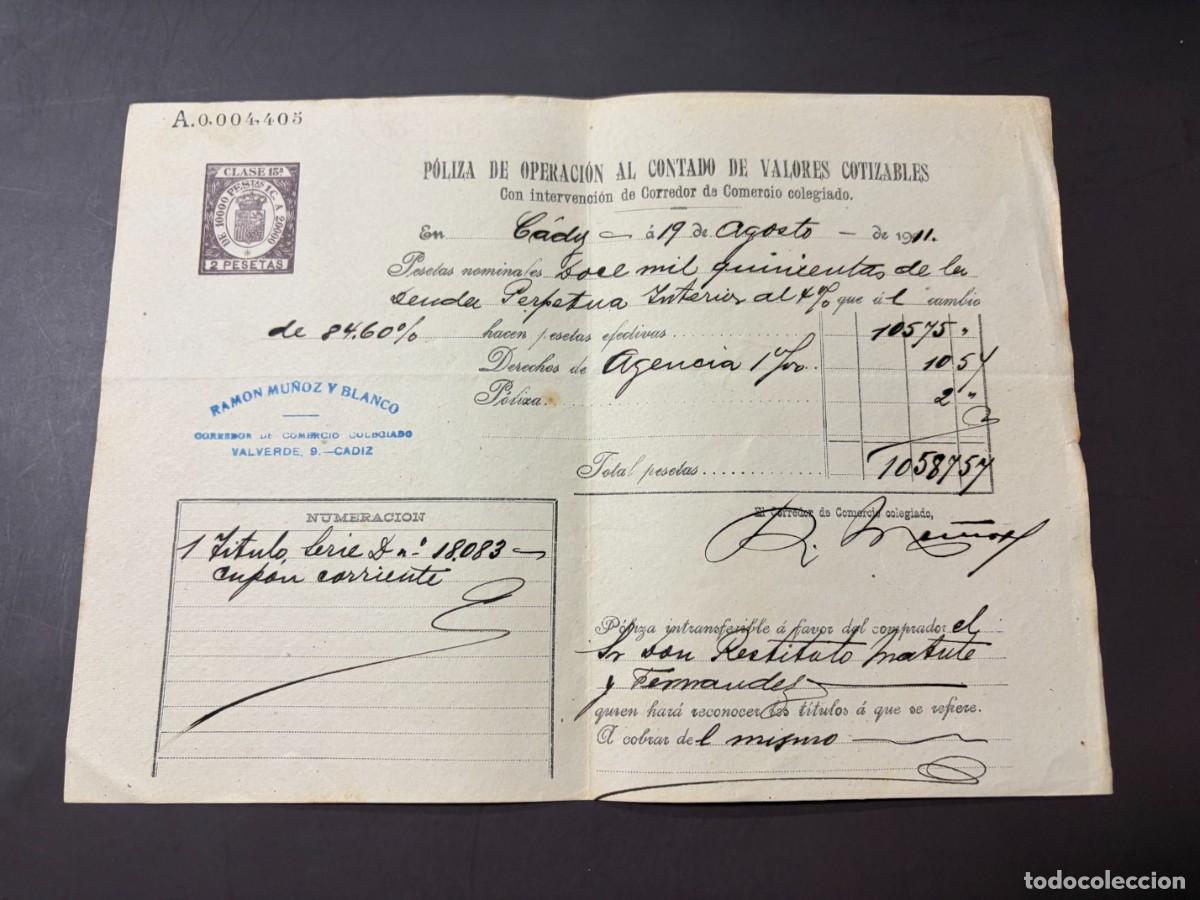 A.0.004,405
CLASE 15ª
DE 10000 PESETAS 1 C. A 20000
2 PESETAS
PÓLIZA DE OPERACIÓN AL CONTADO DE VALORES COTIZABLES
Con intervención de Corredor de Comercio colegiado.
En Cádiz á 19 de Agosto de 1911.
Pesetas nominales Doce mil quinientas de la
Deuda Perpetua Interior al 4% que ál cambio
de 84.60% hacen pesetas efectivas 10575 "
Derechos de Agencia 1 %00. 10 57
Póliza 2 "
Total pesetas 10587 57
RAMON MUÑOZ Y BLANCO
CORREDOR DE COMERCIO COLEGIADO
VALVERDE, 9.—CADIZ
El Corredor de Comercio colegiado,
R. Muñoz
NUMERACION
1 Título, Serie D nº 18.083
cupón corriente
Póliza intransferible á favor del comprador el
Sr Don Restituto Matute
y Fernandez
quien hará reconocer los títulos á que se refiere.
A cobrar del mismo
todocoleccion